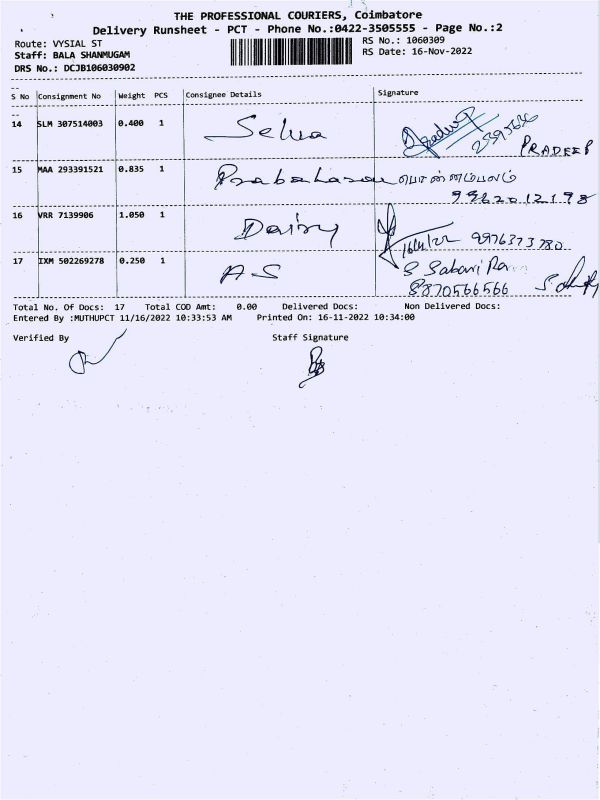 THE PROFESSIONAL COURIERS, Coimbatore
Delivery Runsheet - PCT - Phone No.:0422-3505555 - Page No.:2
Route: VYSIAL ST
RS No.: 1060309
Staff: BALA SHANMUGAM
RS Date: 16-Nov-2022
DRS No.: DCJB106030902
S No Consignment No Weight PCS Consignee Details Signature
14 SLM 307514003 0.400 1 Selva
PRADEEP
15 MAA 293391521 0.835 1 Prabaharan பொன்னம்பலம்
9962012198
16 VRR 7139906 1.050 1 Dairy
16/11/22 9976373780
17 IXM 502269278 0.250 1 AS
S Sabari
8870566566
Total No. Of Docs: 17 Total COD Amt: 0.00 Delivered Docs: Non Delivered Docs:
Entered By :MUTHUPCT 11/16/2022 10:33:53 AM Printed On: 16-11-2022 10:34:00
Verified By Staff Signature